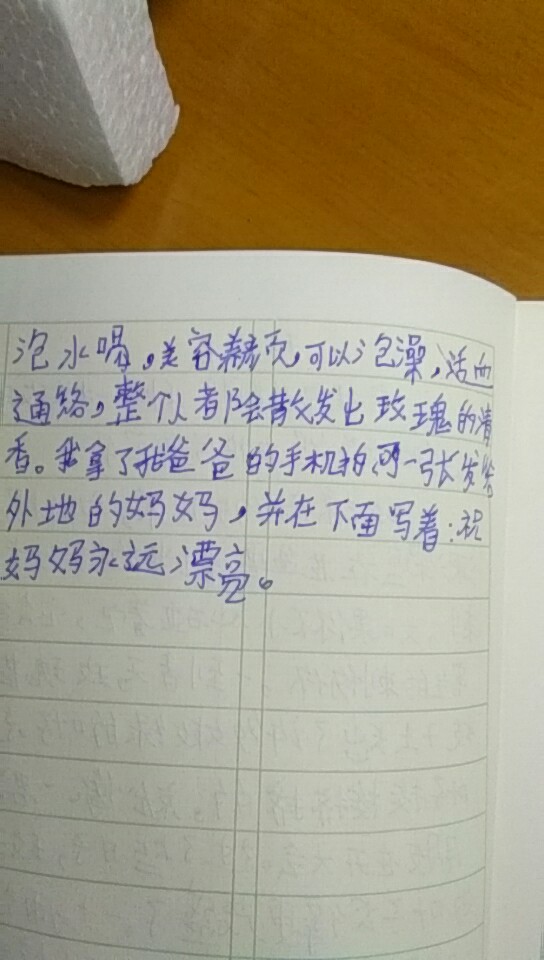 泡水喝，美容养颜，可以泡澡，活血
通络，整个人都会散发出玫瑰的清
香。我拿了我爸爸的手机拍了一张发给
外地的妈妈，并在下面写着：祝
妈妈永远漂亮。